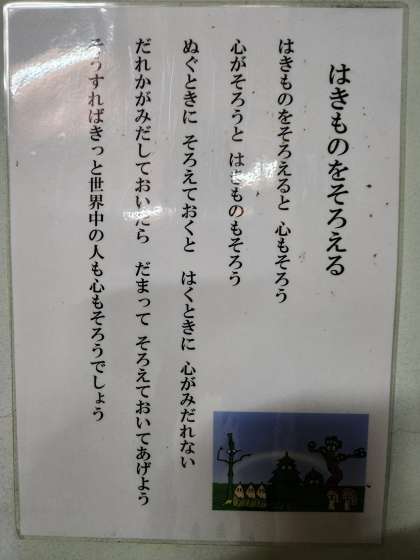 はきものをそろえる
はきものをそろえると 心もそろう
心がそろうと はきものもそろう
ぬぐときに そろえておくと はくときに 心がみだれない
だれかがみだしておいたら だまって そろえておいてあげよう
そうすればきっと世界中の人も心もそろうでしょう